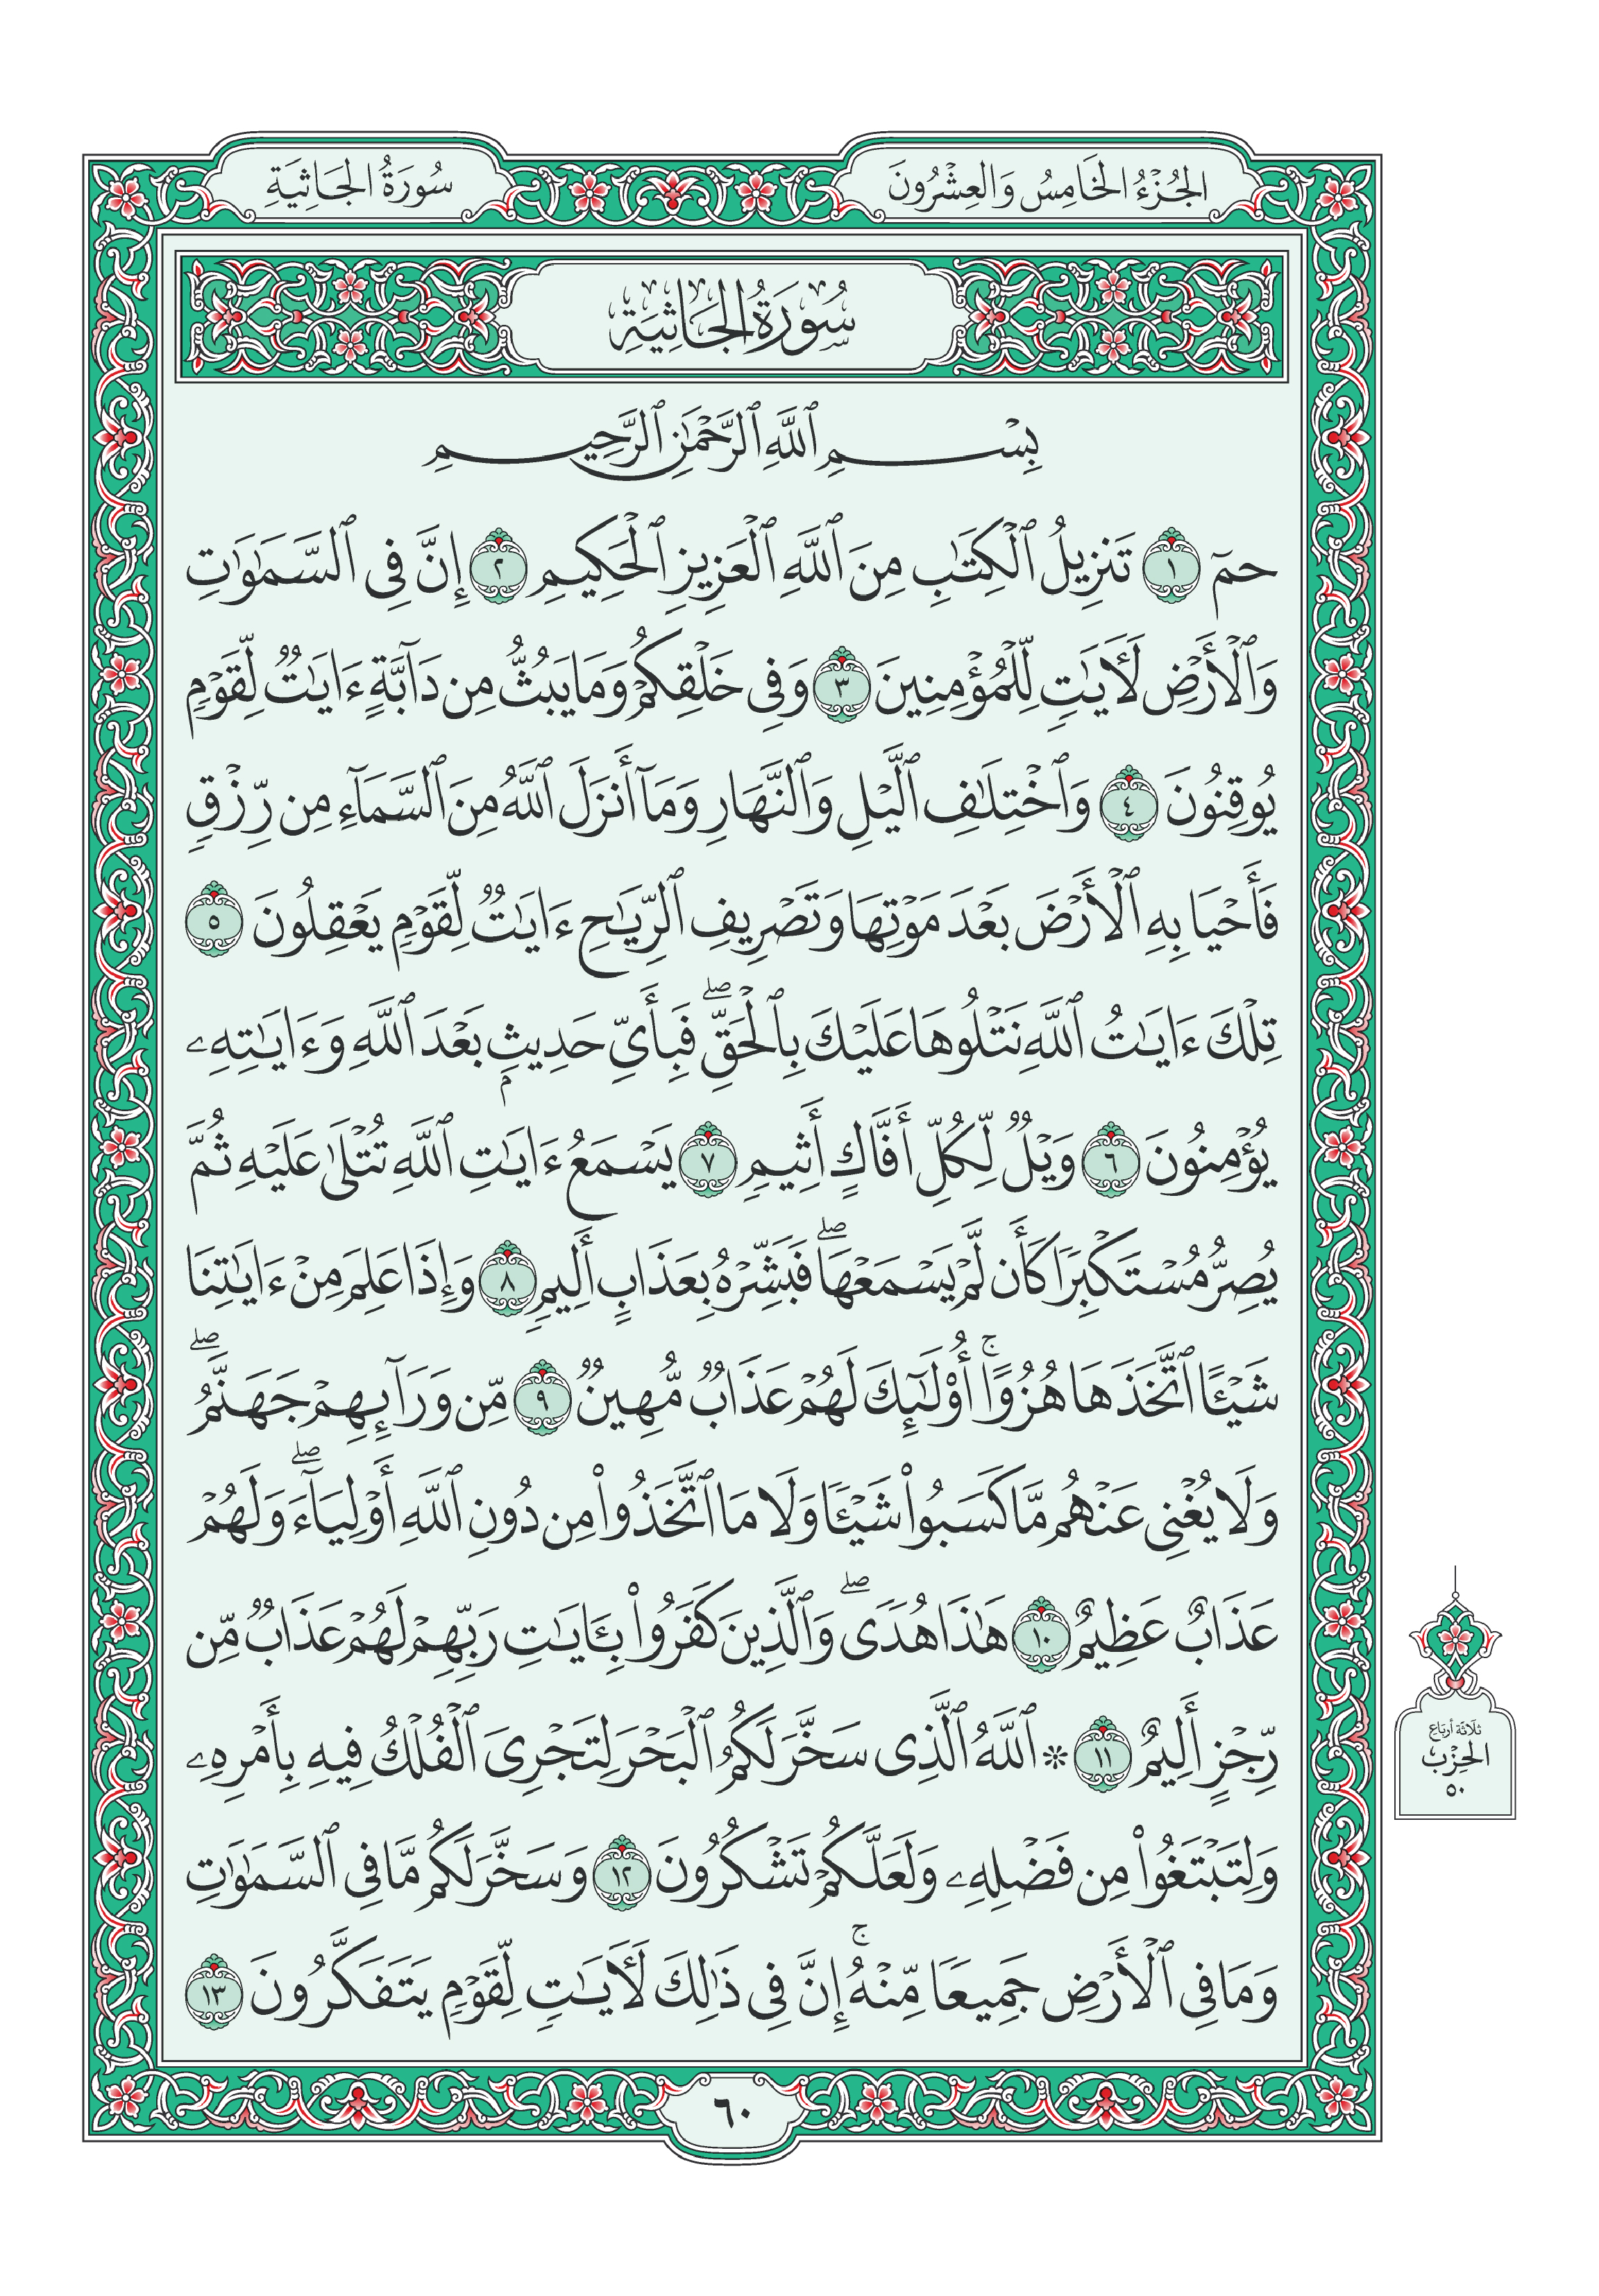 الجُزْءُ الخَامِسُ وَالعِشْرُونَ
سُورَةُ الجَاثِيَةِ
سُورَةُ الجَاثِيَةِ
بِسْمِ ٱللَّهِ ٱلرَّحْمَٰنِ ٱلرَّحِيمِ
حمٓ ١ تَنزِيلُ ٱلْكِتَٰبِ مِنَ ٱللَّهِ ٱلْعَزِيزِ ٱلْحَكِيمِ ٢ إِنَّ فِى ٱلسَّمَٰوَٰتِ
وَٱلْأَرْضِ لَـَٔايَٰتٍ لِّلْمُؤْمِنِينَ ٣ وَفِى خَلْقِكُمْ وَمَا يَبُثُّ مِن دَآبَّةٍ ءَايَٰتٌ لِّقَوْمٍ
يُوقِنُونَ ٤ وَٱخْتِلَٰفِ ٱلَّيْلِ وَٱلنَّهَارِ وَمَآ أَنزَلَ ٱللَّهُ مِنَ ٱلسَّمَآءِ مِن رِّزْقٍ
فَأَحْيَا بِهِ ٱلْأَرْضَ بَعْدَ مَوْتِهَا وَتَصْرِيفِ ٱلرِّيَٰحِ ءَايَٰتٌ لِّقَوْمٍ يَعْقِلُونَ ٥
تِلْكَ ءَايَٰتُ ٱللَّهِ نَتْلُوهَا عَلَيْكَ بِٱلْحَقِّ ۖ فَبِأَىِّ حَدِيثٍۭ بَعْدَ ٱللَّهِ وَءَايَٰتِهِۦ
يُؤْمِنُونَ ٦ وَيْلٌ لِّكُلِّ أَفَّاكٍ أَثِيمٍ ٧ يَسْمَعُ ءَايَٰتِ ٱللَّهِ تُتْلَىٰ عَلَيْهِ ثُمَّ
يُصِرُّ مُسْتَكْبِرًا كَأَن لَّمْ يَسْمَعْهَا ۖ فَبَشِّرْهُ بِعَذَابٍ أَلِيمٍ ٨ وَإِذَا عَلِمَ مِنْ ءَايَٰتِنَا
شَيْـًٔا ٱتَّخَذَهَا هُزُوًا ۚ أُو۟لَٰٓئِكَ لَهُمْ عَذَابٌ مُّهِينٌ ٩ مِّن وَرَآئِهِمْ جَهَنَّمُ ۖ
وَلَا يُغْنِى عَنْهُم مَّا كَسَبُوا۟ شَيْـًٔا وَلَا مَا ٱتَّخَذُوا۟ مِن دُونِ ٱللَّهِ أَوْلِيَآءَ ۖ وَلَهُمْ
عَذَابٌ عَظِيمٌ ١٠ هَٰذَا هُدًى ۖ وَٱلَّذِينَ كَفَرُوا۟ بِـَٔايَٰتِ رَبِّهِمْ لَهُمْ عَذَابٌ مِّن
رِّجْزٍ أَلِيمٌ ١١ * ٱللَّهُ ٱلَّذِى سَخَّرَ لَكُمُ ٱلْبَحْرَ لِتَجْرِىَ ٱلْفُلْكُ فِيهِ بِأَمْرِهِۦ
وَلِتَبْتَغُوا۟ مِن فَضْلِهِۦ وَلَعَلَّكُمْ تَشْكُرُونَ ١٢ وَسَخَّرَ لَكُم مَّا فِى ٱلسَّمَٰوَٰتِ
وَمَا فِى ٱلْأَرْضِ جَمِيعًا مِّنْهُ ۚ إِنَّ فِى ذَٰلِكَ لَـَٔايَٰتٍ لِّقَوْمٍ يَتَفَكَّرُونَ ١٣
ثلَاثَة أرباع
الحِزْب
٥٠
٦٠